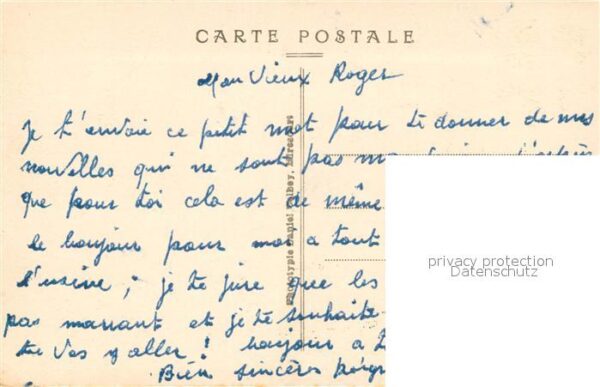 CARTE POSTALE
Mon Vieux Roger
Je t'envoie ce petit mot pour te donner de mes
nouvelles qui ne sont pas
que pour toi cela est de même
le bonjour pour moi a tout
l'usine ; je te jure que les
pas marrant et je te souhaite
tu vas y aller ! bonjour a
Bien sincères
Phototypie Daniel Delboy, Mirecourt
privacy protection
Datenschutz